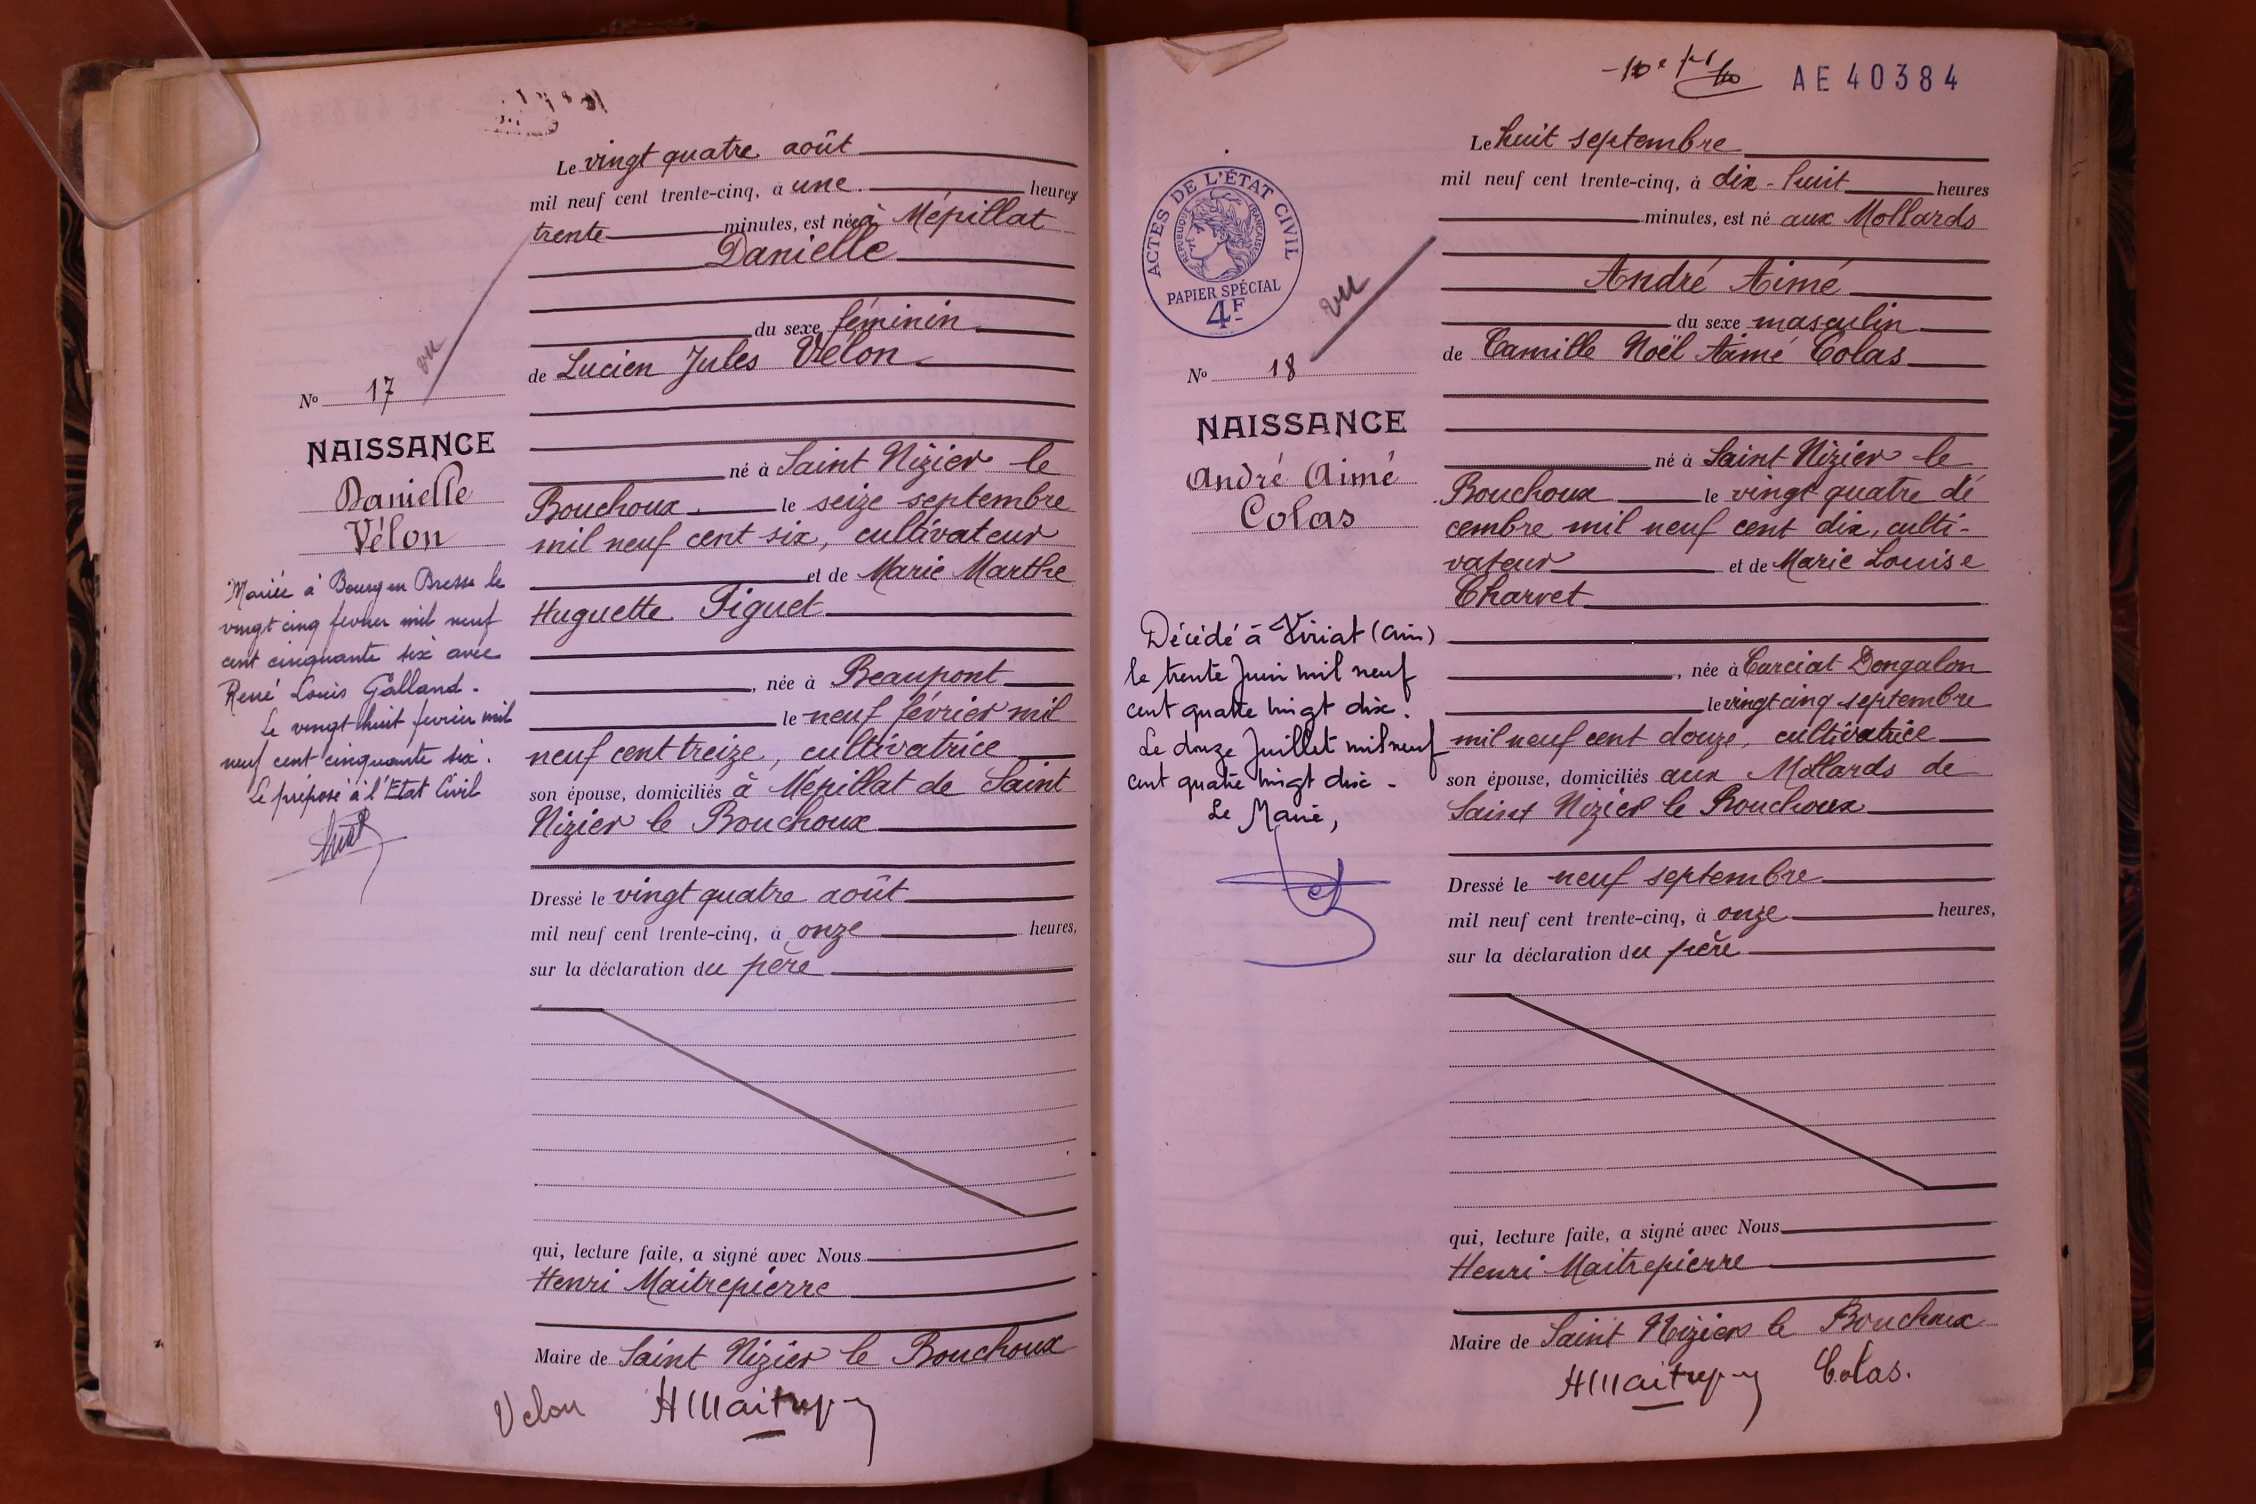 Le vingt quatre août
mil neuf cent trente-cinq, à une heures
trente minutes, est née à Mépillat
Danielle
du sexe féminin
de Lucien Jules Vélon
N° 17
vu
NAISSANCE
Danielle
Vélon
né à Saint Nizier le
Bouchoux le seize septembre
mil neuf cent six, cultivateur
et de Marie Marthe
Huguette Piguet
, née à Beaupont
le neuf février mil
neuf cent treize, cultivatrice
son épouse, domiciliés à Mépillat de Saint
Nizier le Bouchoux
Mariée à Bourg en Bresse le
vingt cinq fevrier mil neuf
cent cinquante six avec
René Louis Galland.
Le vingt huit fevrier mil
neuf cent cinquante six.
Le préposé à l'Etat Civil
Dressé le vingt quatre août
mil neuf cent trente-cinq, à onze heures,
sur la déclaration du père
qui, lecture faite, a signé avec Nous
Henri Maitrepierre
Maire de Saint Nizier le Bouchoux
Velon
AE 40384
Le huit septembre
mil neuf cent trente-cinq, à dix-huit heures
minutes, est né aux Mollards
André Aimé
du sexe masculin
de Camille Noël Aimé Colas
ACTES DE L'ÉTAT CIVIL
RÉPUBLIQUE FRANÇAISE
PAPIER SPÉCIAL
4F
vu
N° 18
NAISSANCE
André Aimé
Colas
né à Saint Nizier le
Bouchoux le vingt quatre dé
cembre mil neuf cent dix, culti-
vateur et de Marie Louise
Charvet
, née à Curciat Dongalon
le vingt cinq septembre
mil neuf cent douze, cultivatrice
son épouse, domiciliés aux Mollards de
Saint Nizier le Bouchoux
Décédé à Viriat (Ain)
le trente Juin mil neuf
cent quatre vingt dix.
Le douze Juillet mil neuf
cent quatre vingt dix -
Le Maire,
Dressé le neuf septembre
mil neuf cent trente-cinq, à onze heures,
sur la déclaration du père
qui, lecture faite, a signé avec Nous
Henri Maitrepierre
Maire de Saint Nizier le Bouchoux
Colas.